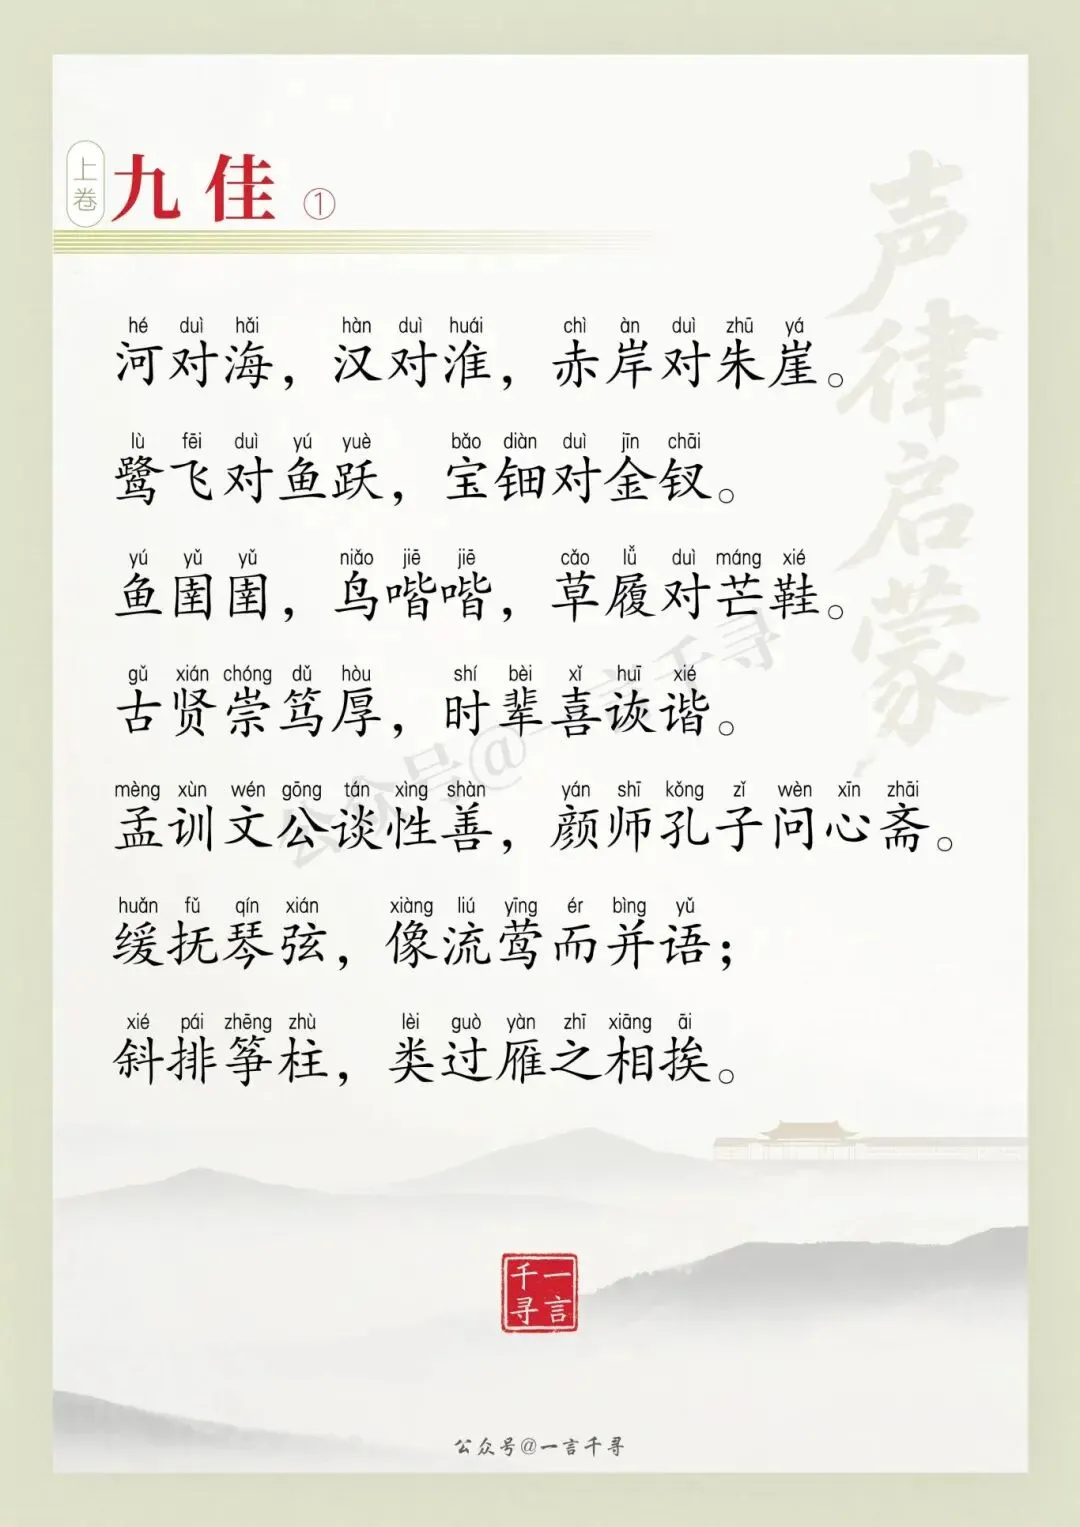 上卷
九佳 ①
声律启蒙
hé duì hǎi hàn duì huái chì àn duì zhū yá
河对海，汉对淮，赤岸对朱崖。
lù fēi duì yú yuè bǎo diàn duì jīn chāi
鹭飞对鱼跃，宝钿对金钗。
yú yǔ yǔ niǎo jiē jiē cǎo lǚ duì máng xié
鱼圉圉，鸟喈喈，草履对芒鞋。
gǔ xián chóng dǔ hòu shí bèi xǐ huī xié
古贤崇笃厚，时辈喜诙谐。
mèng xùn wén gōng tán xìng shàn yán shī kǒng zǐ wèn xīn zhāi
孟训文公谈性善，颜师孔子问心斋。
huǎn fǔ qín xián xiàng liú yīng ér bìng yǔ
缓抚琴弦，像流莺而并语；
xié pái zhēng zhù lèi guò yàn zhī xiāng āi
斜排筝柱，类过雁之相挨。
公众号@一言千寻
一言千寻
公众号@一言千寻